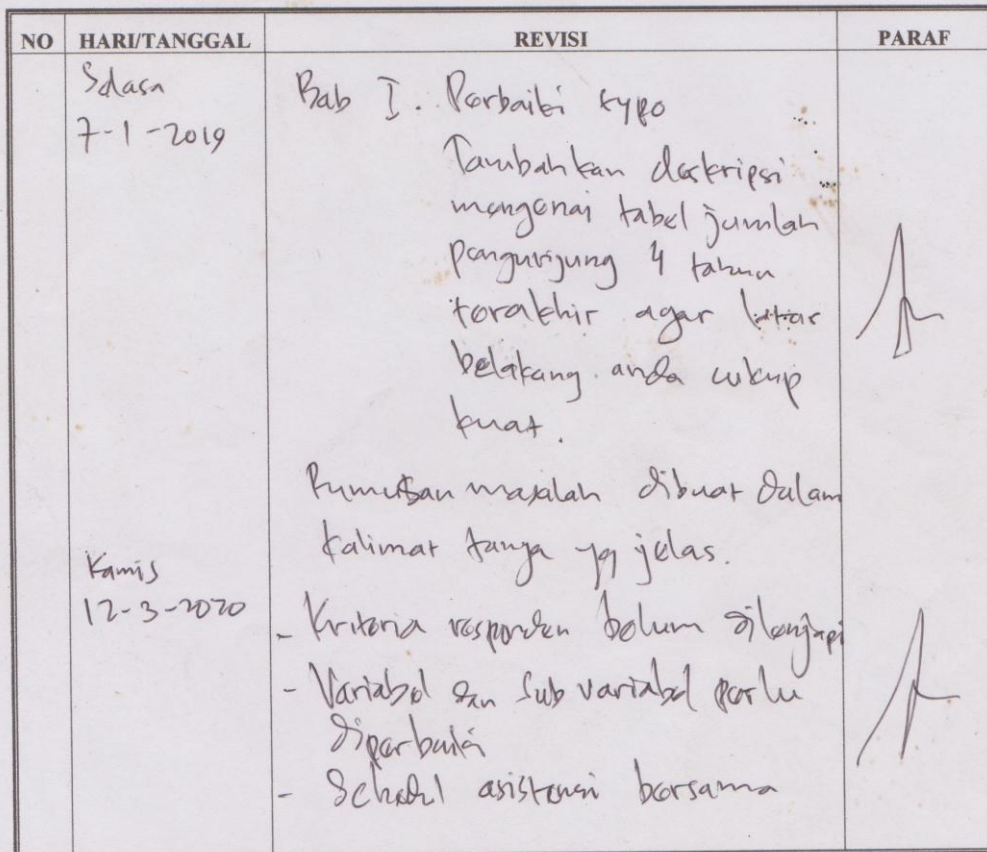 NO HARI/TANGGAL REVISI PARAF
Selasa
7-1-2019
Bab I. Perbaiki typo
Tambahkan deskripsi
mengenai tabel jumlah
pengunjung 4 tahun
terakhir agar latar
belakang anda cukup
kuat.
Rumusan masalah dibuat dalam
kalimat tanya yg jelas.
Kamis
12-3-2020
- Kriteria responden belum dilengkapi
- Variabel dan Sub variabel perlu
diperbaiki
- asistensi bersama